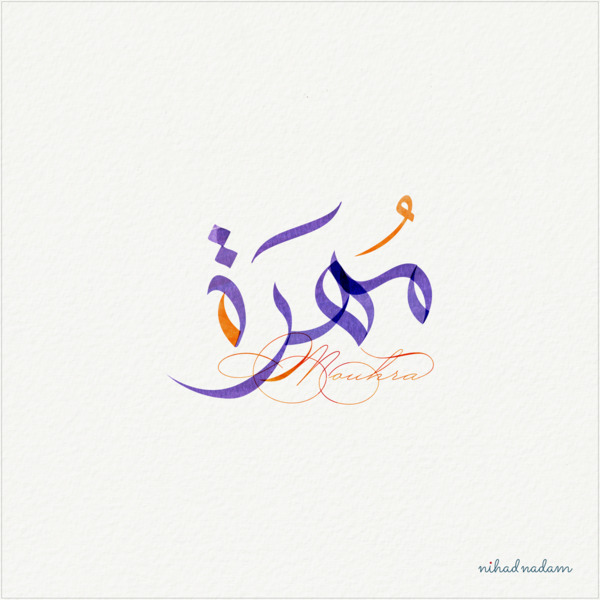 مُهرَة
Mouhra
nihad nadam